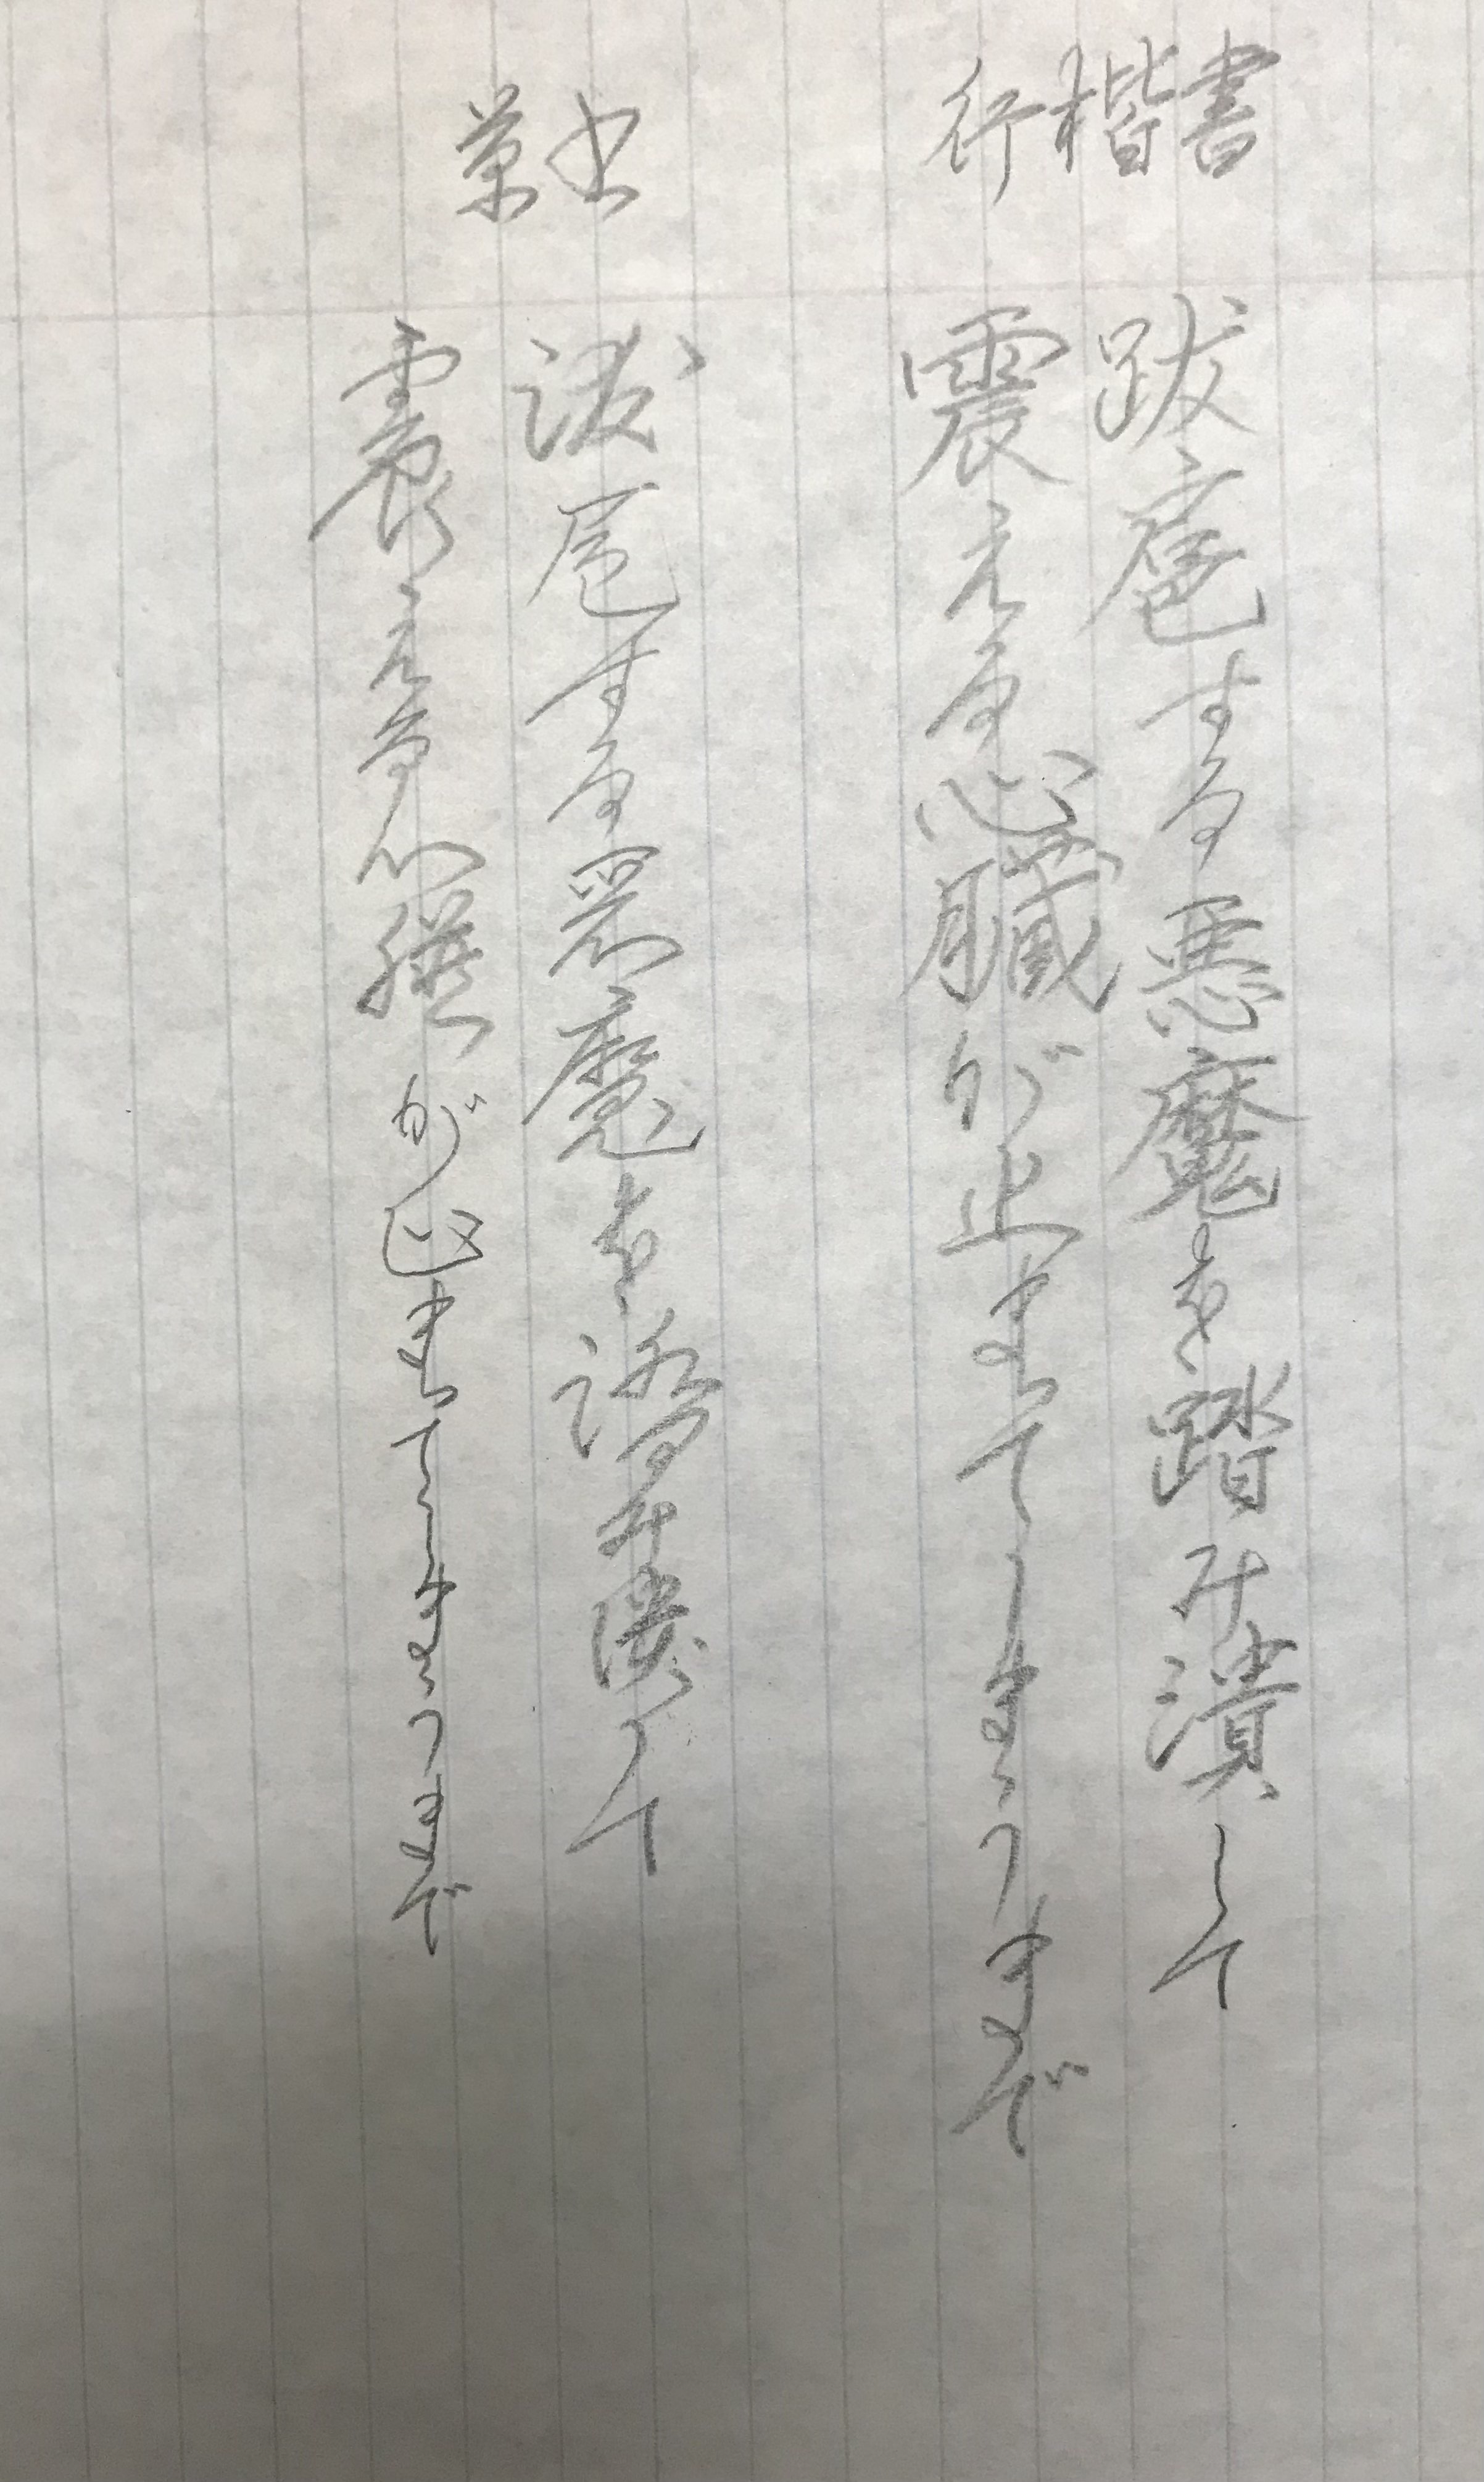 行楷書
跋扈する悪魔を踏み潰して
震える心臓が止まってしまうまで
草書
跋扈する悪魔を踏み潰して
震える心臓が止まってしまうまで